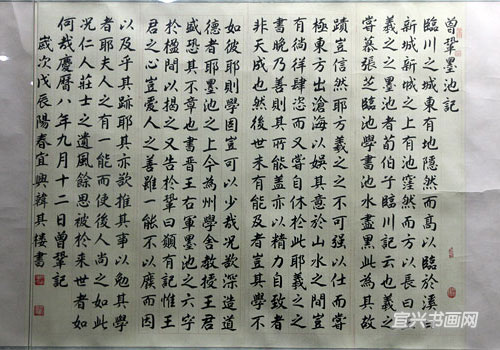 曾鞏墨池記
臨川之城東有地隱然而高以臨於溪曰
新城新城之上有池窪然而方以長曰王
羲之之墨池者荀伯子臨川記云也羲之
嘗慕張芝臨池學書池水盡黑此為其故
蹟豈信然耶方羲之之不可強以仕而嘗
極東方出滄海以娛其意於山水之間豈
有徜徉肆恣而又嘗自休於此耶羲之之
書晚乃善則其所能蓋亦以精力自致者
非天成也然後世未有能及者豈其學不
如彼耶則學固豈可以少哉況欲深造道
德者耶墨池之上今為州學舍教授王君
盛恐其不章也書晉王右軍墨池之六字
於楹間以揭之又告於鞏曰願有記惟王
君之心豈愛人之善雖一能不以廢而因
以及乎其跡耶其亦欲推其事以勉其學
者耶夫人之有一能而使後人尚之如此
況仁人莊士之遺風餘思被於來世者如
何哉慶曆八年九月十二日曾鞏記
歲次戊辰陽春宜興韓其樓書
宜兴书画网